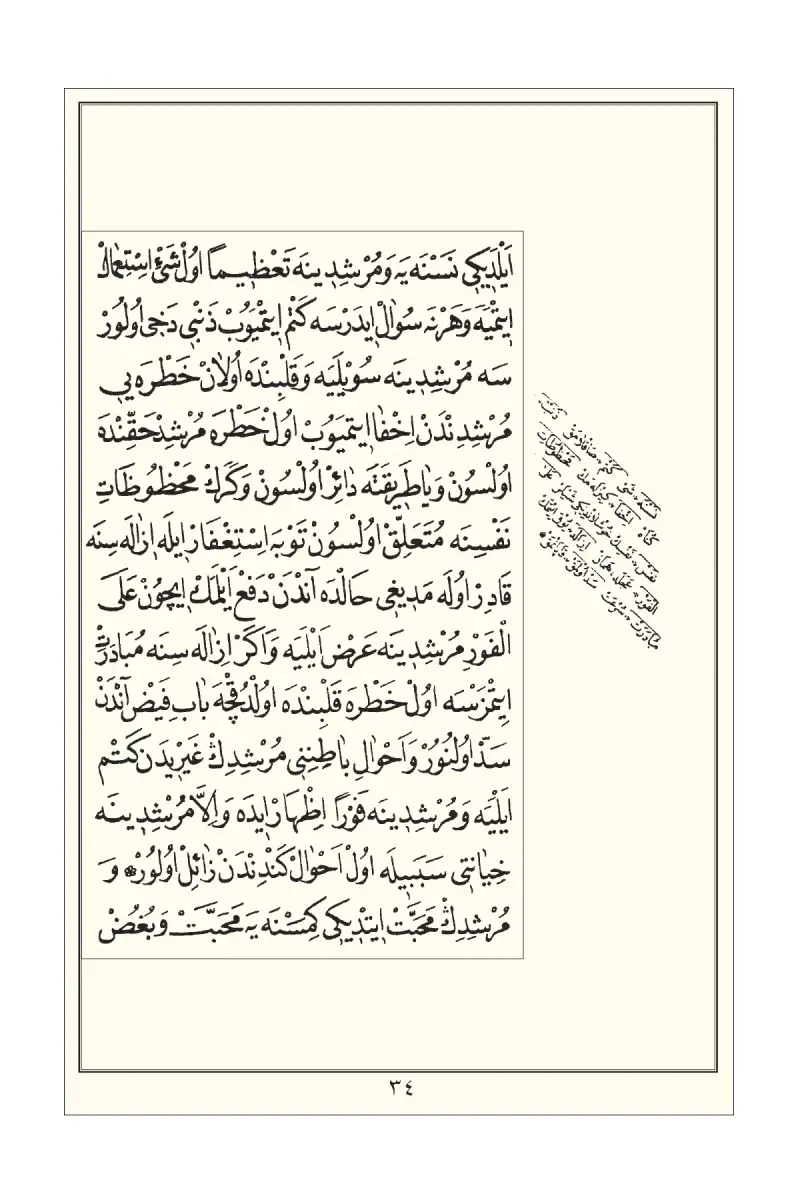 اَيْلَدِيكِى نَسْنَه يَه وَمُرْشِدِينَه تَعْظِيمًا اُولْ شَئْ اِسْتِعْمَالْ
اِيتْمِيَه وَهَرْنَه سُوَالْ اِيدَرْسَه كَتْمْ اِيتْمِيُوبْ ذَنْبِى دَخِى اُولُورْ
سَه مُرْشِدِينَه سُويْلَيَه وَقَلْبِنْدَه اُولَانْ خَطْرَه يِى
مُرْشِدِنْدَنْ اِخْفَا اِيتْمِيَوُبْ اولْ خَطْرَه مُرْشِدْحَقِّنْدَه
اولْسُونْ وَيَا طَرِيقَتَه دَائِرْ اُولْسُونْ وَكَرَكْ مَحْظُوظَاتِ
نَفْسِنَه مُتَعَلِّقْ اولْسُونْ تَوْبَه اِسْتِغْفَارْ اِيلَه اِزَالَه سِنَه
قَادِرْ اُولَه مَدِيغِى حَالْدَه آنْدَنْ دَفْعْ اَيْلَمَكْ اِيچُونْ عَلَى
الْفَوْرِ مُرْشِدِينَه عَرْضْ اَيْلَيَه وَاَكَرْ اِزَالَه سِنَه مُبَادَرَتْ
اِيتْمَزْسَه اولْ خَطْرَه قَلْبِنْدَه اولْدُقْچَه بَابِ فَيْضْ آنْدَنْ
سَدّْ اولُنُورْ وَاَحْوَالِ بَاطِنِنِى مُرْشِدِڭْ غَيْرِيدَنْ كَتْمْ
اَيْلَيَه وَمُرْشِدِينَه فَوْرًا اِظْهَارْ اِيدَه وَاِلَّا مُرْشِدِينَه
خِيَانَتِى سَبَبِيلَه اولْ اَحْوَالْ كَنْدِنْدَنْ زَائِلْ اُولُورْ * وَ
مُرْشِدِڭْ مَحَبَّتْ اِيتْدِيكِى كِمْسَنَه يَه مَحَبَّتْ وَبُغْضْ
٣٤